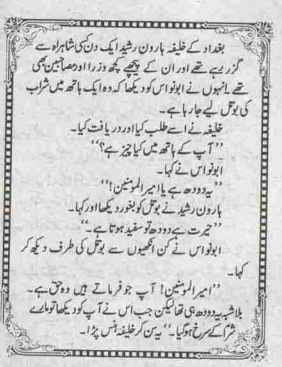 بغداد کے خلیفہ ہارون رشید ایک دن کسی شاہراہ سے
گزر رہے تھے اور ان کے پیچھے کچھ وزرا اور مصاحبین بھی
تھے انہوں نے ابونواس کو دیکھا کہ وہ ایک ہاتھ میں شراب
کی بوتل لیے جارہا ہے۔
خلیفہ نے اسے طلب کیا اور دریافت کیا۔
”آپ کے ہاتھ میں کیا چیز ہے؟“
ابونواس نے کہا۔
”یہ دودھ ہے یا امیر المومنین!“
ہارون رشید نے بوتل کو بغور دیکھا اور کہا۔
”حیرت ہے دودھ تو سفید ہوتا ہے۔“
ابونواس نے کن انکھیوں سے بوتل کی طرف دیکھ کر
کہا۔
”امیر المومنین! آپ جو فرماتے ہیں وہ حق ہے۔
بلاشبہ یہ دودھ ہی تھا لیکن جب اس نے آپ کو دیکھا تو مارے
شرم کے سرخ ہو گیا۔“ یہ سن کر خلیفہ ہنس پڑا۔